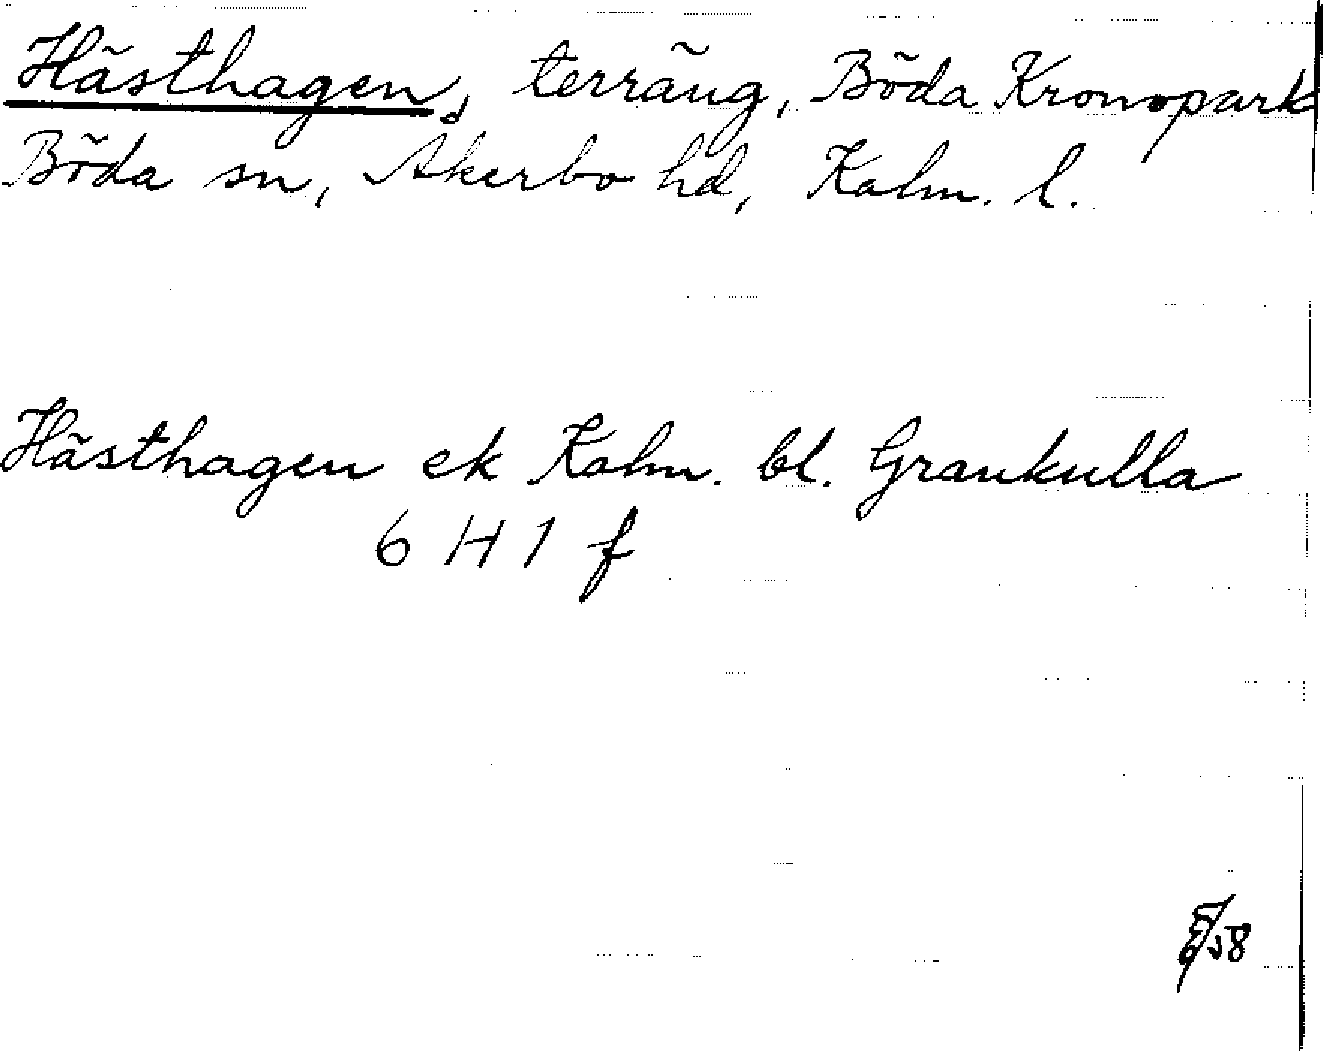 Hästhagen, terräng, Böda Kronopark
Böda sn, Åkerbo hd, Kalm. l.
Hästhagen ek Kalm. bl. Grankulla
6 H 1 f